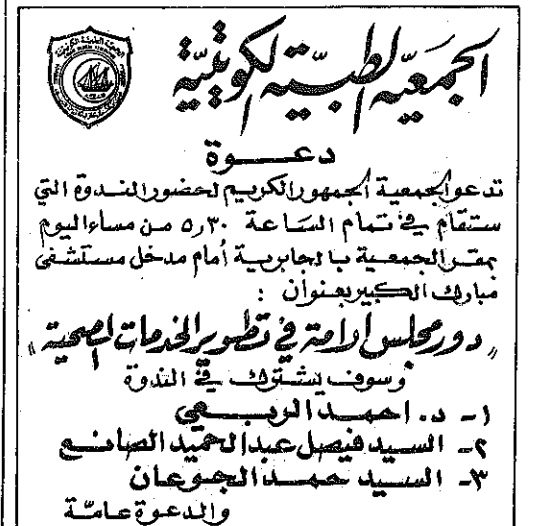 الجمعيّة الطبيّة الكويتيّة
دعــوة
تدعو الجمعية الجمهور الكريم لحضور الندوة التي
ستقام في تمام السّاعة ٥٫٣٠ من مساء اليوم
بمقر الجمعية بالجابرية أمام مدخل مستشفى
مبارك الكبير بعنوان :
" دور مجلس الأمة في تطوير الخدمات الصحية "
وسوف يشترك في الندوة
١- د. احمد الربعي
٢- السيد فيصل عبدالحميد الصانع
٣- السيد حمد الجوعان
والدعوة عامّة